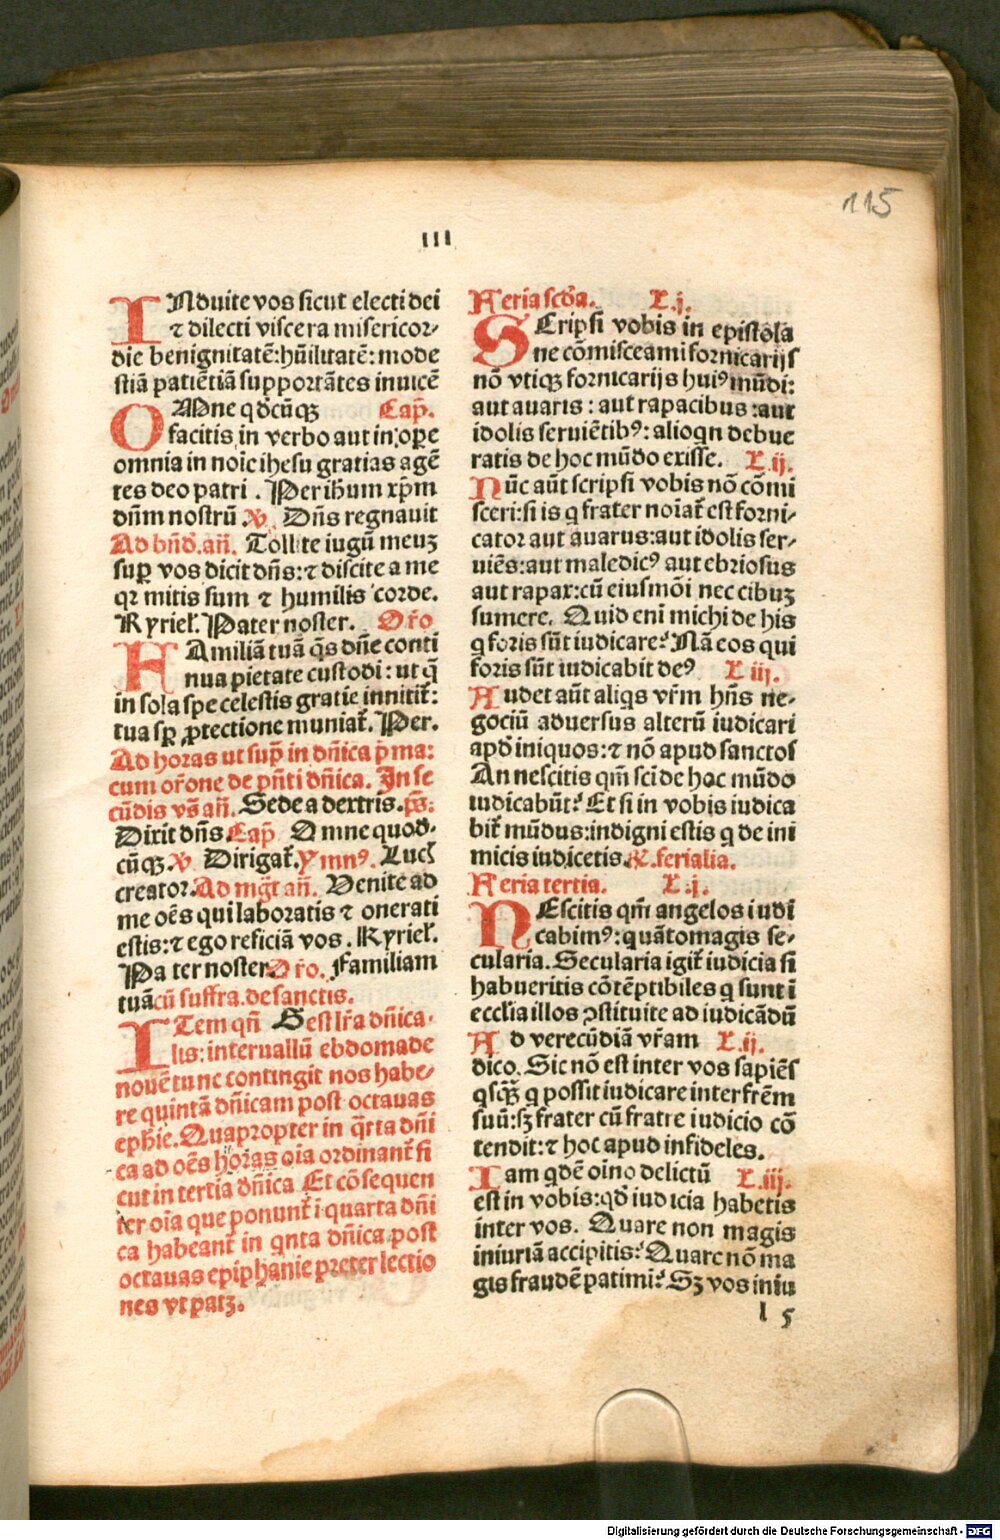 115
III
INduite vos sicut electi dei
⁊ dilecti viscera misericor-
die benignitatē: hūilitatē: mode
stiā patiētiā supportātes inuicē
OMne qdcūqꝫ Cap̄.
facitis in verbo aut in oꝑe
omnia in noīe ihesu gratias agē
tes deo patri . Per ih̄um xp̄m
dn̄m nostrū ꝟ. Dn̄s regnauit
Ad bn̄d. an̄. Tollite iugū meuꝫ
suꝑ vos dicit dn̄s: ⁊ discite a me
qꝛ mitis sum ⁊ humilis corde.
Kyriel̄. Pater noster. Or̄o
FAmiliā tuā q̄s dn̄e conti
nua pietate custodi: ut q̄
in sola spe celestis gratie innitit᷑:
tua sꝑ ꝓtectione muniat᷑. Per.
Ad horas ut sup̄ in dn̄ica p̄ma:
cum or̄one de p̄nti dn̄ica. In se
cūdis vs̄ an̄. Sede a dextris. ps̄:
Dixit dn̄s. Cap̄ Omne quod-
cūqꝫ. ꝟ. Dirigat᷑. ymnꝰ. Lucꝭ
creator. Ad mḡt an̄. Venite ad
me oēs qui laboratis ⁊ onerati
estis: ⁊ ego reficiā vos. Kyriel̄.
Pater noster. Or̄o. Familiam
tuā cū suffra. de sanctis.
ITem qn̄ S est lr̄a dn̄ica-
lis: interuallū ebdomade
nouē tunc contingit nos habe-
re quintā dn̄icam post octauas
eph̄ie. Quapropter in q̄rta dn̄i
ca ad oēs horas oīa ordinant᷑ si
cut in tertia dn̄ica Et cōsequen
ter oīa que ponunt᷑ ī quarta dn̄i
ca habeant᷑ in qnta dn̄ica post
octauas epiphanie preter lectio
nes vt patꝫ.
Feria scd̄a. L.j.
SCripsi vobis in epistola
ne cōmisceami fornicarijs
nō vtiqꝫ fornicarijs huiꝰ mūdi:
aut auaris : aut rapacibus : aut
idolis seruiētibꝰ: alioqn debue
ratis de hoc mūdo exisse. L.ij.
Nūc aūt scripsi vobis nō cōmi
sceri: si is q frater noīat᷑ est forni-
cator aut auarus: aut idolis ser-
uiēs: aut maledicꝰ aut ebriosus
aut rapax: cū eiusmōi nec cibuꝫ
sumere. Quid enī michi de his
q foris sūt iudicare? Nā eos qui
foris sūt iudicabit deꝰ L iij.
Audet aūt aliqs vr̄m hn̄s ne-
gociū aduersus alterū iudicari
apd̄ iniquos: ⁊ nō apud sanctos
An nescitis qm̄ sci de hoc mūdo
iudicabūt? Et si in vobis iudica
bit᷑ mūdus: indigni estis q de ini
micis iudicetis. ꝶ. ferialia.
Feria tertia. L.j.
NEscitis qm̄ angelos iudi
cabimꝰ: quātomagis se-
cularia. Secularia igit᷑ iudicia si
habueritis cōtēptibiles q sunt ī
eccl̄ia illos ꝯstituite ad iudicādū
Ad verecūdiā vr̄am L.ij.
dico. Sic nō est inter vos sapiēs
qsqꝫ̄ q possit iudicare inter fr̄em
suū: sꝫ frater cū fratre iudicio cō
tendit: ⁊ hoc apud infideles.
Iam qdē oīno delictū L.iij.
est in vobis: qd̄ iudicia habetis
inter vos. Quare non magis
iniuriā accipitis? Quare nō ma
gis fraudē patimi? Sꝫ vos iniu
l 5
Digitalisierung gefördert durch die Deutsche Forschungsgemeinschaft - DFG